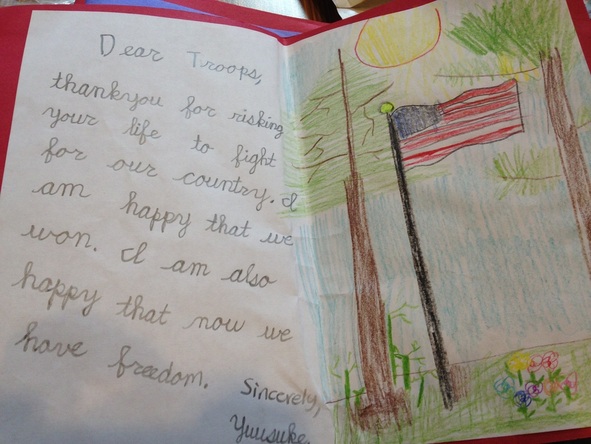 Dear Troops,
thankyou for risking
your life to fight
for our country. I
am happy that we
won. I am also
happy that now we
have freedom.
Sincerely,
Yuusuke